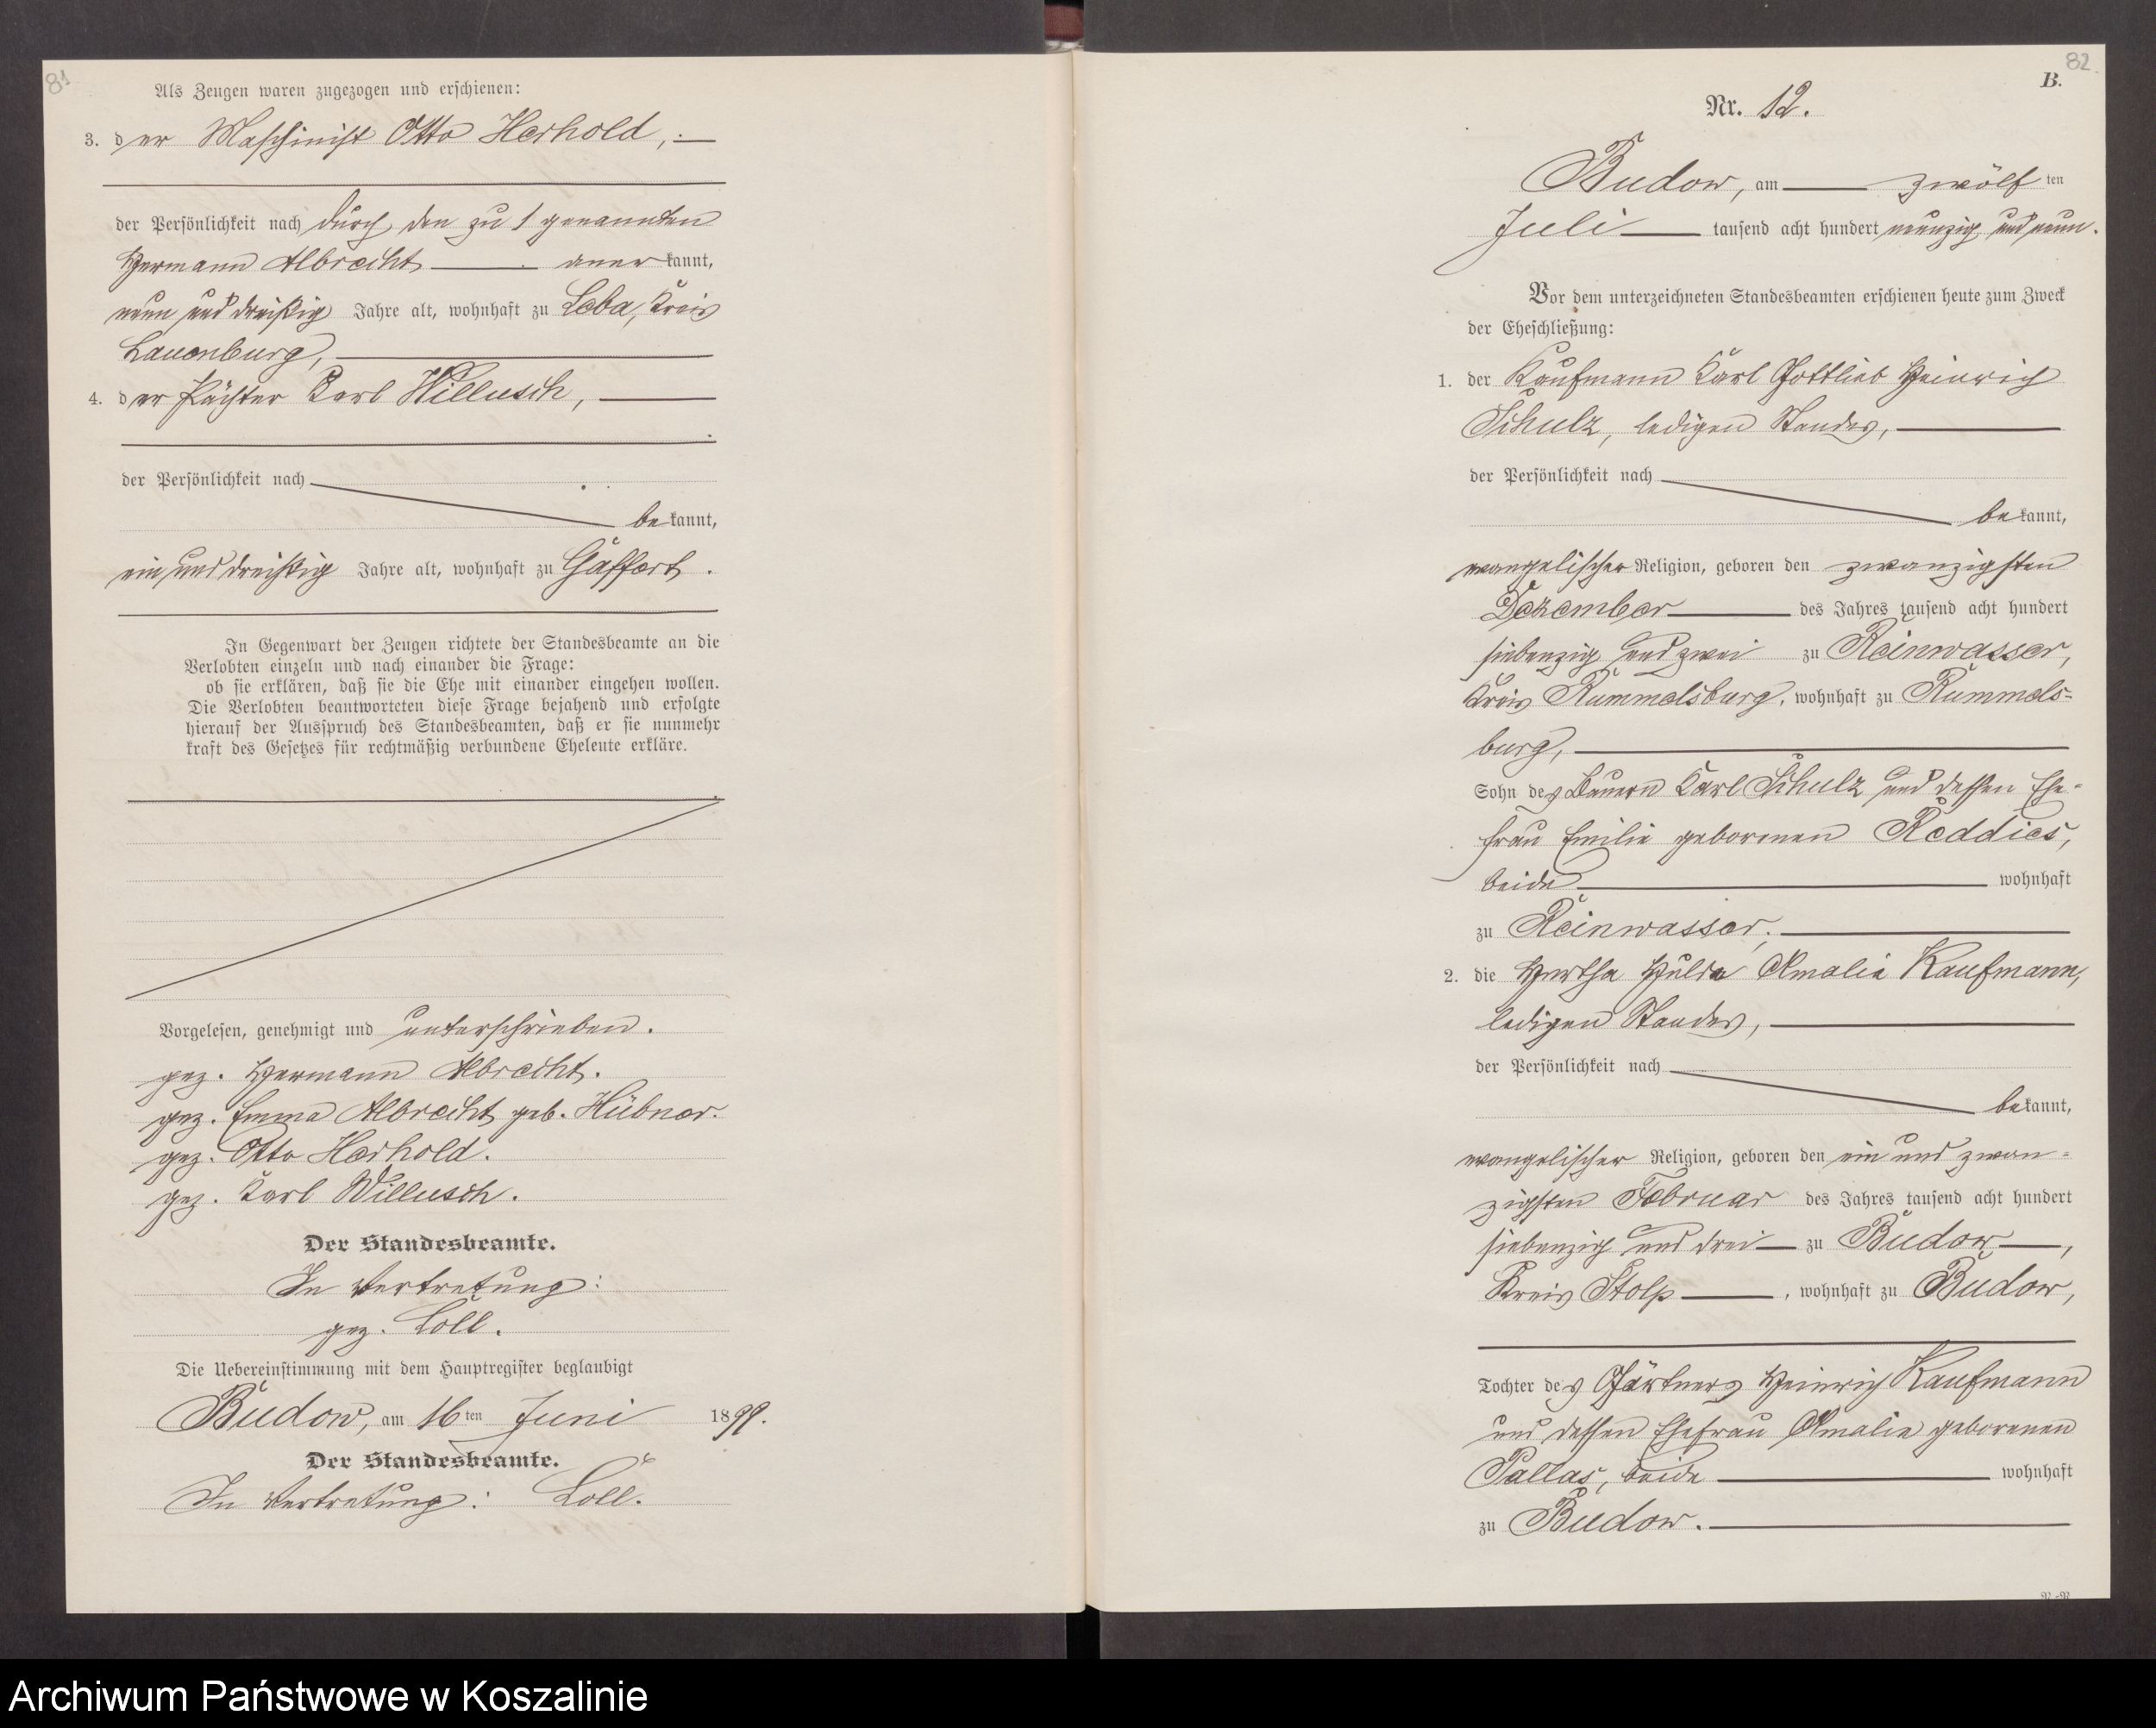 81
Als Zeugen waren zugezogen und erschienen:
3. der Maschinist Otto Herhold,
der Persönlichkeit nach durch den zu 1 genannten
Hermann Albrecht anerkannt,
neun und dreißig Jahre alt, wohnhaft zu Leba, Kreis
Lauenburg,
4. der Pächter Karl Willusch,
der Persönlichkeit nach
bekannt,
ein und dreißig Jahre alt, wohnhaft zu Gaffert.
In Gegenwart der Zeugen richtete der Standesbeamte an die
Verlobten einzeln und nach einander die Frage:
ob sie erklären, daß sie die Ehe mit einander eingehen wollen.
Die Verlobten beantworteten diese Frage bejahend und erfolgte
hierauf der Ausspruch des Standesbeamten, daß er sie nunmehr
kraft des Gesetzes für rechtmäßig verbundene Eheleute erkläre.
Vorgelesen, genehmigt und unterschrieben.
gez. Hermann Albrecht.
gez. Emma Albrecht geb. Hübner.
gez. Otto Herhold.
gez. Karl Willusch.
Der Standesbeamte.
In Vertretung:
gez. Loll.
Die Uebereinstimmung mit dem Hauptregister beglaubigt
Budow, am 16ten Juni 1899.
Der Standesbeamte.
In Vertretung: Loll.
82.
B.
Nr. 12.
Budow, am zwölften
Juli tausend acht hundert neunzig und neun.
Vor dem unterzeichneten Standesbeamten erschienen heute zum Zweck
der Eheschließung:
1. der Kaufmann Karl Gottlieb Heinrich
Schulz, ledigen Standes,
der Persönlichkeit nach
bekannt,
evangelischer Religion, geboren den zwanzigsten
Dezember des Jahres tausend acht hundert
siebenzig und zwei zu Reinwasser,
Kreis Rummelsburg, wohnhaft zu Rummels=
burg,
Sohn des Bauern Karl Schulz und dessen Ehe=
frau Emilie geborenen Reddies,
beide wohnhaft
zu Reinwasser;
2. die Hertha Hulda Amalia Kaufmann,
ledigen Standes,
der Persönlichkeit nach
bekannt,
evangelischer Religion, geboren den ein und zwan=
zigsten Februar des Jahres tausend acht hundert
siebenzig und drei zu Budow,
Kreis Stolp, wohnhaft zu Budow,
Tochter des Gärtners Heinrich Kaufmann
und dessen Ehefrau Amalie geborenen
Pallas, beide wohnhaft
zu Budow.
Archiwum Państwowe w Koszalinie